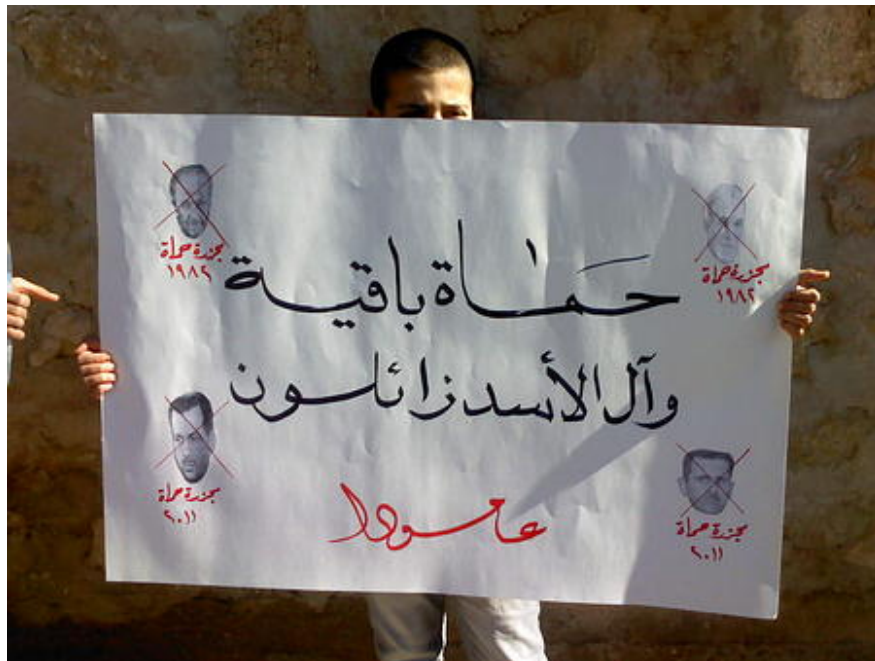 مجزرة حماة
١٩٨٢
مجزرة حماة
١٩٨٢
حماة باقية
وآل الأسد زائلون
مجزرة حماة
٢٠١١
مجزرة حماة
٢٠١١
عامودا